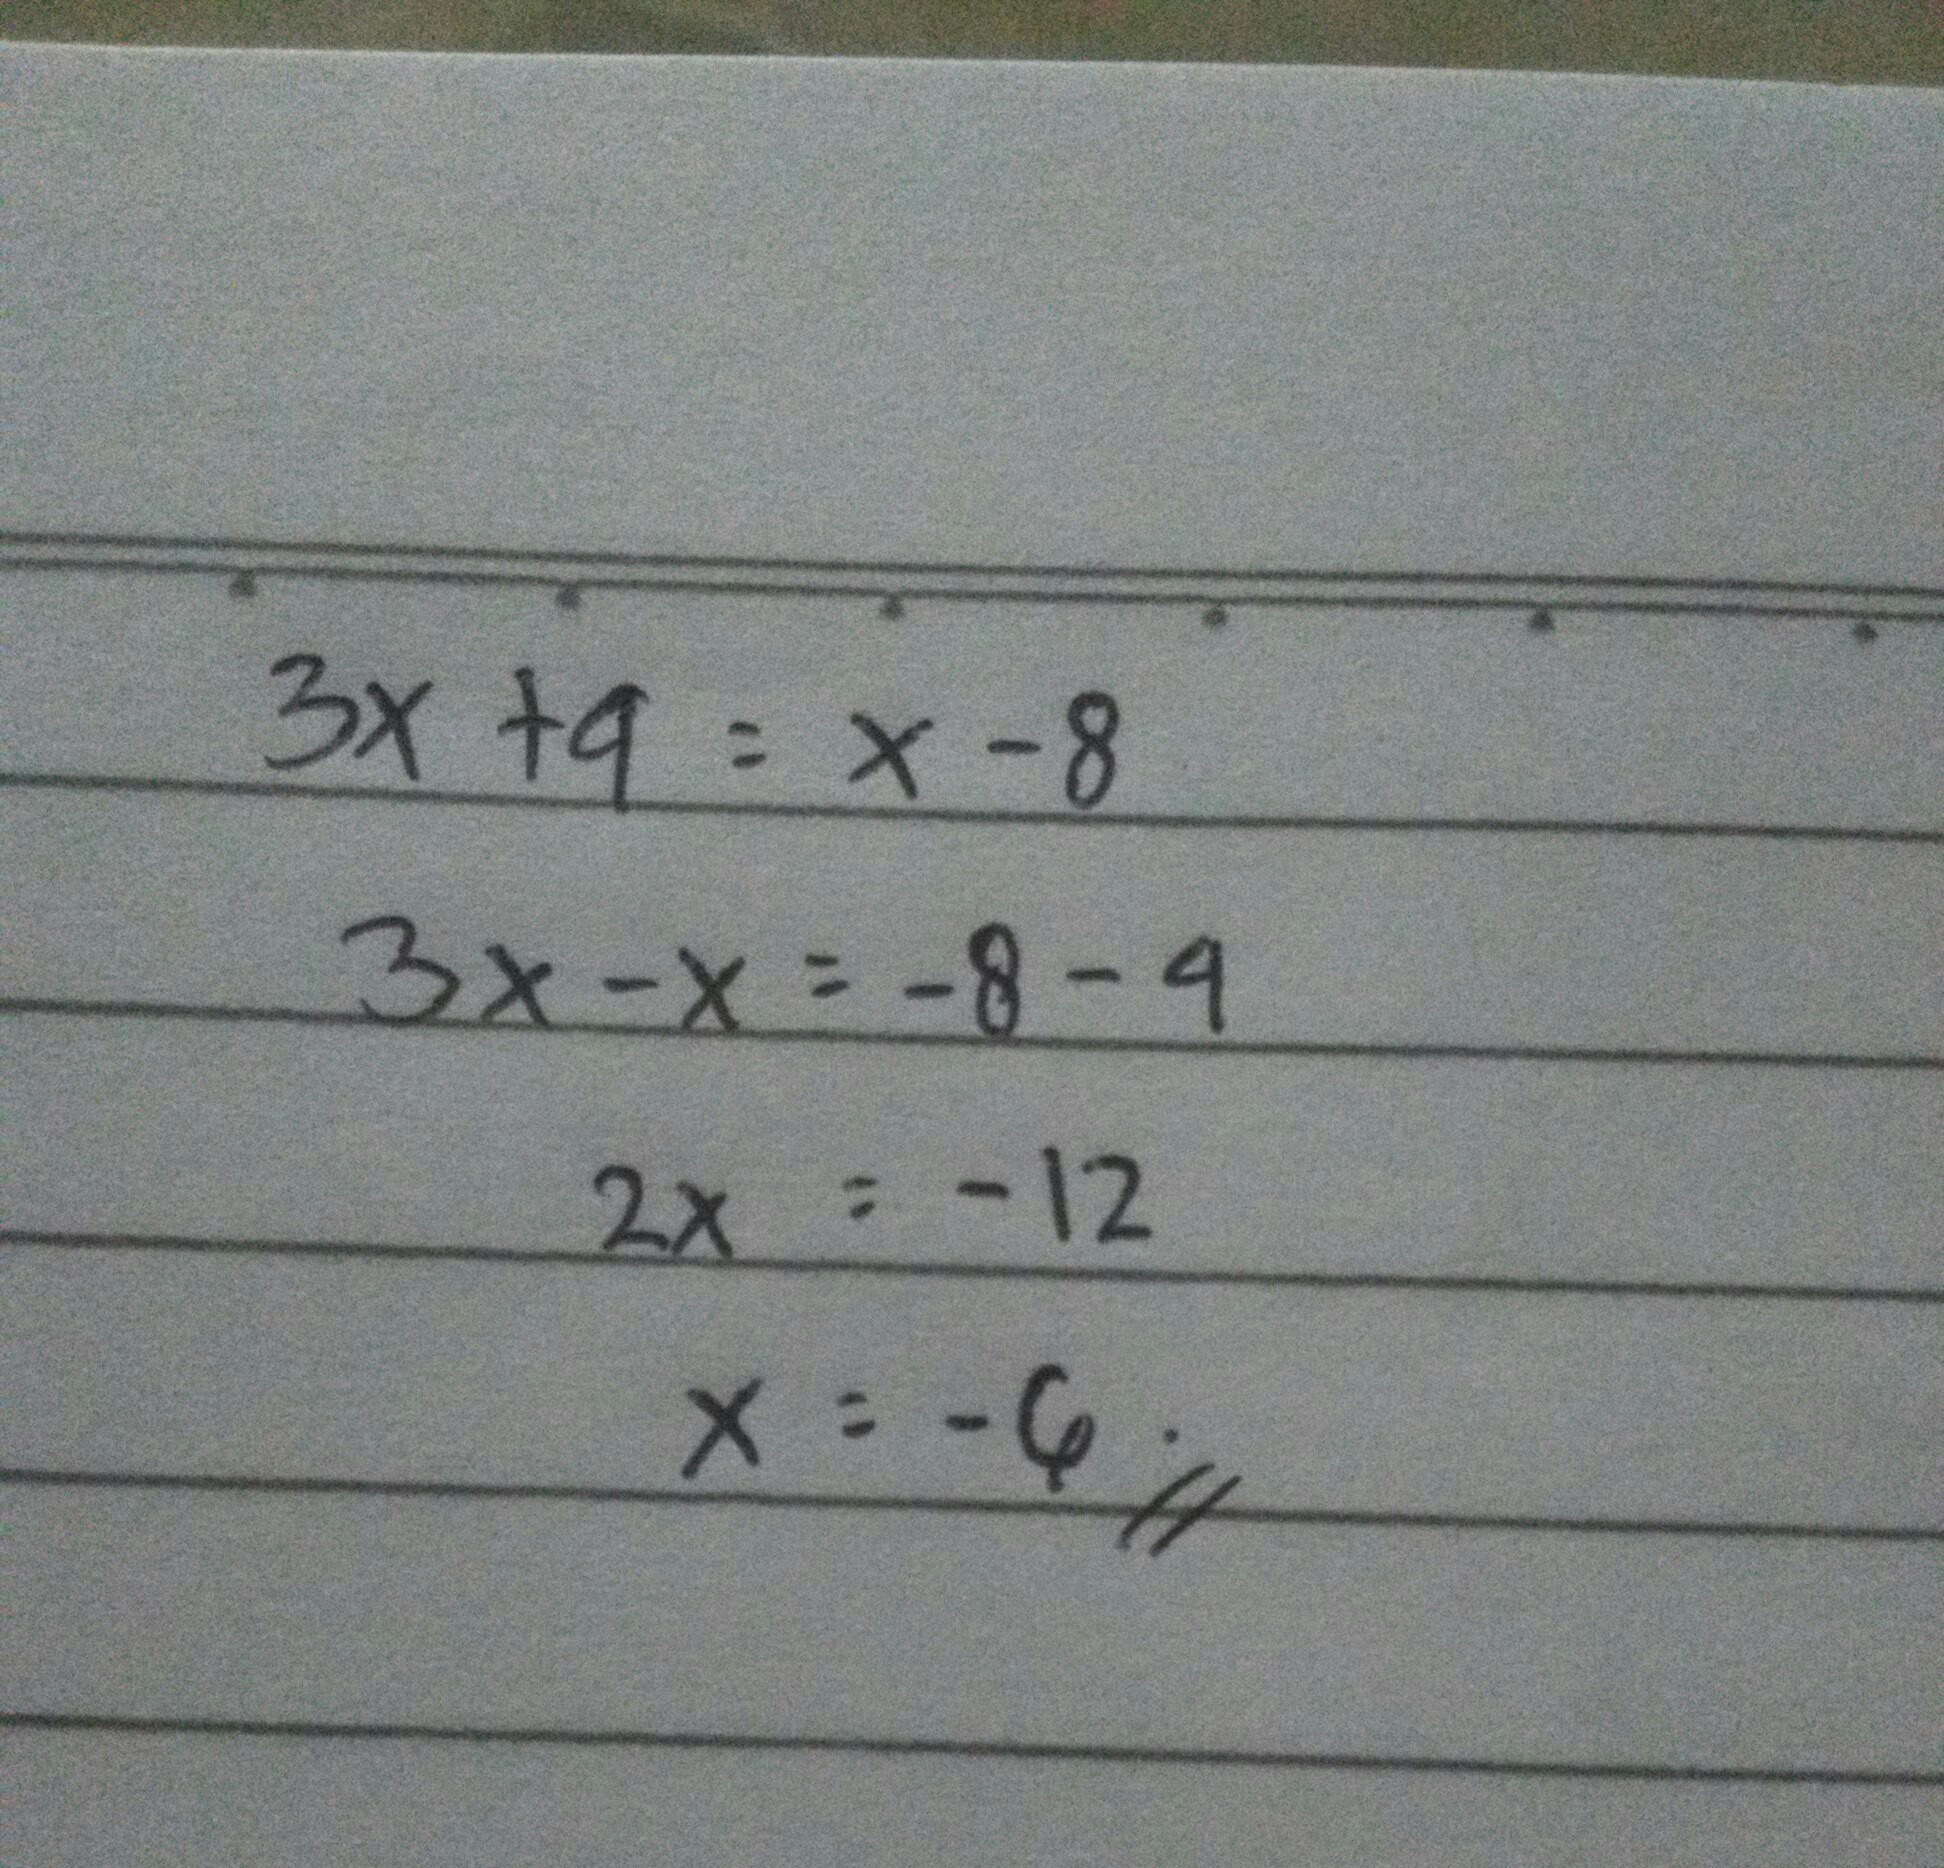 3x + 4 = x - 8
3x - x = -8 - 4
2x = -12
x = -6 .//